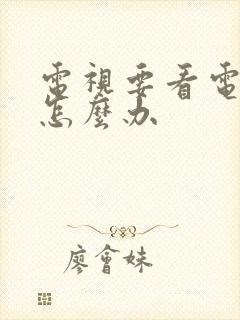 電視要看電
怎麼办
廖會妹